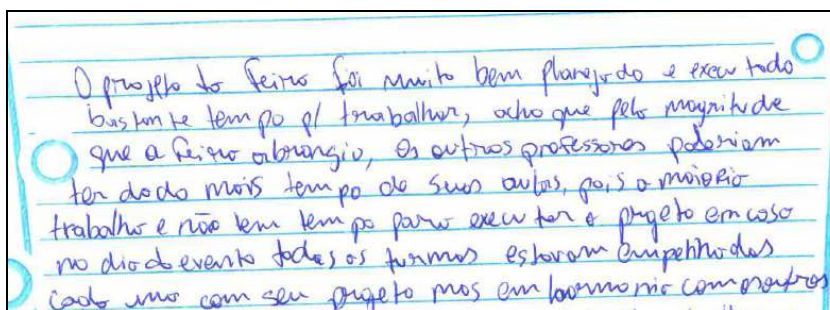 O projeto da feira foi muito bem planejado e executado
bastante tempo p/ trabalhar, acho que pela magnitude
que a feira abrangia, os outros professores poderiam
ter dado mais tempo de suas aulas, pois a maioria
trabalha e não tem tempo para executar o projeto em casa
no dia do evento todas as turmas estavam empenhadas
cada uma com seu projeto mas em harmonia com os outros